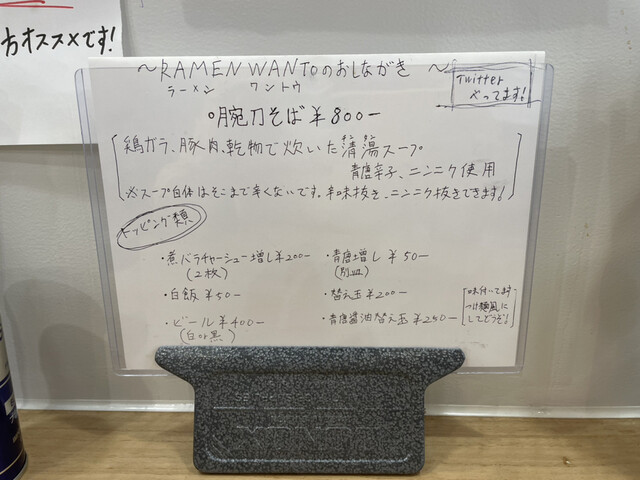 方オススメです!
〜RAMEN WANTOのおしながき〜
ラーメン ワントウ
Twitter
やってます!
腕刀そば ¥800-
鶏ガラ、豚肉、乾物で炊いた清湯スープ
青唐辛子、ニンニク使用
※スープ自体はそこまで辛くないです。辛味抜き、ニンニク抜きできます!
トッピング類
・煮バラチャーシュー増し¥200-
(2枚)
・白飯 ¥50-
・ビール ¥400-
(白or黒)
・青唐増し ¥50-
(別皿)
・替え玉 ¥200-
・青唐醤油替え玉 ¥250-
味付いてます
つけ麺風に
してどうぞ!